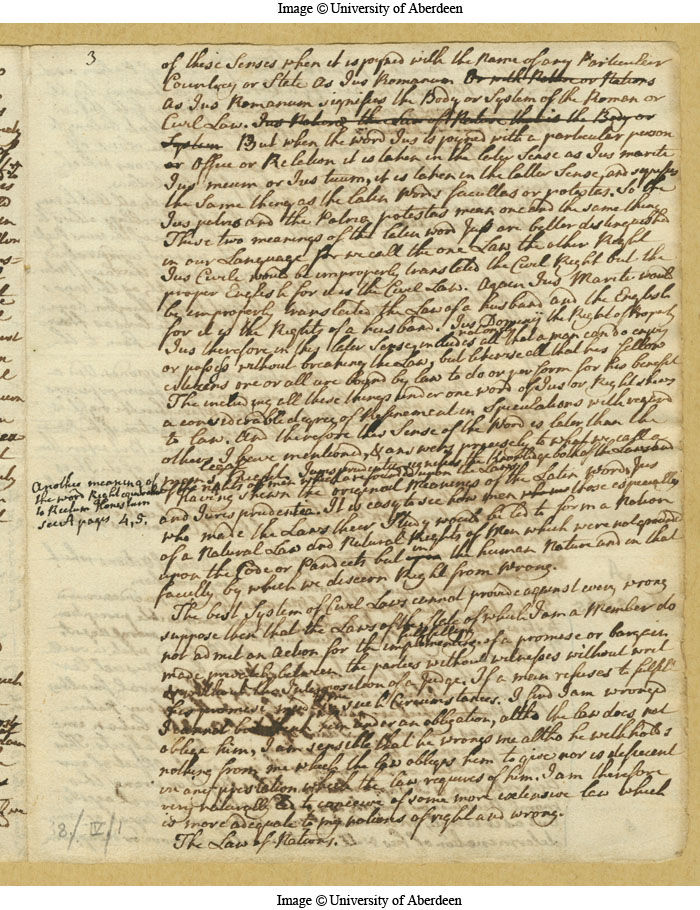 Image © University of Aberdeen
3
of these Senses when it is joyned with the Name of any Particular
Country or State as Jus Romanum Or with Nature or Nations
As Jus Romanum signifies the Body or System of the Roman or
Civil Law. Jus Naturæ the Law of Nature that is the Body or
System But when the word Jus is joyned with a particular person
or Office or Relation it is taken in the later Sense as Jus mariti
Jus meum or Jus tuum, it is taken in the latter Sense, and signifies
the Same thing as the latin Words facultas or potestas. So the
Jus patris and the Patria potestas mean one and the same thing
These two meanings of the latin word Jus are better distinguished
in our Language for we call the one Law the other Right
Jus Civile would be improperly translated the Civil Right but the
proper English for it is the Civil Law. Again Jus Mariti would
be improperly translated the Law of a husband and the English
for it is the Right of a husband. Jus Dominij the Right of Property
Jus therefore in this later Sense, includes not only all that a man can do enjoy
or possess without breaking the Law, but likewise all that his fellow
citizens one or all are bound by law to do or perform for his benefit
The including all these things under one word of Jus or Right shews
a considerable degree of Refinement in Speculations with regard
to Law. And therefore this Sense of the Word is later than the
others I have mentioned, & answers precisely to what we call a
legal Right. Jurisprudentia signifies the Knowledge both of the Laws and
of the rights of men which are founded upon the Laws
Having shewn the original Meanings of the Latin Words Jus
and Jurisprudentia. It is easy to see how men those especially
who made the Laws their Study would be led to form a Notion
of a Natural Law and Natural Rights of Man which were not grounded
upon the Code or Pandects but in upon the human Nature and in that
faculty by which we discern Right from Wrong.
Another meaning of
the word Right
to Rectum Honestum
see A pages 4, 5.
The best System of Civil Laws cannot provide against every wrong
suppose then that the Laws of the State of which I am a Member do
not admit an action for the fulfilling of a promise or bargain
made privately between the parties without witnesses without writ
or without the Interposition of a Judge. If a man refuses to fulfill
his promise in such Circumstances. I find I am wronged
I cannot but under an obligation, altho the law does not
oblige him, I am sensible that he wrongs me altho he withholds
nothing from me which the law obliges him to give nor is deficient
in any prestation which the law requires of him. I am therefore
very naturally led to conceive of some more extensive law which
is more adequate to my notions of right and wrong.
The Law of Nations.
8/IV/1
Image © University of Aberdeen